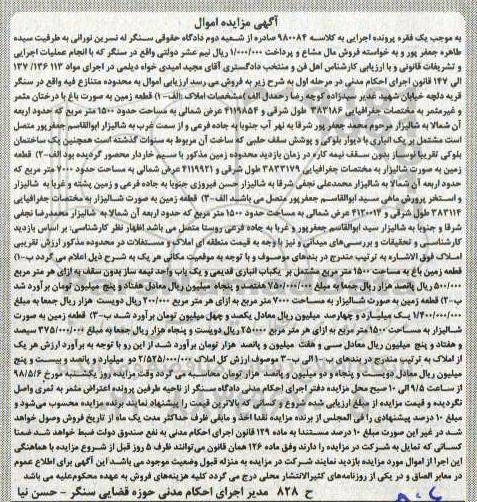 آگهی مزایده اموال
به موجب یک فقره پرونده اجرایی به کلاسه ۹۸۰۰۸۴ صادره از شعبه دوم دادگاه حقوقی سنگر له نسرین نورانی به طرفیت سیده
طاهره جعفر پور و به خواسته فروش مال مشاع و پرداخت ۱/۰۰۰/۰۰۰ ریال نیم عشر دولتی واقع در سنگر که با انجام عملیات اجرایی
و تشریفات قانونی و با ارزیابی کارشناس اهل فن و منتخب دادگستری آقای مجید امیدی خواه دیلمی در اجرای مواد ۱۱۳ ۱۳۶/ ۱۳۷
الی ۱۴۷ قانون اجرای احکام مدنی در مرحله اول به شرح زیر به فروش می رسد ارزیابی اموال به محدوده متنازع فیه واقع در سنگر
قریه دلچه خیابان شهید غدیر سیدزاده کوچه رضا رحمدل الف)مشخصات املاک :الف-۱) قطعه زمین به صورت باغ با درختان مثمر
و غیرمثمر به مختصات جغرافیایی ۳۸۳۱۸۳ طول شرقی و ۴۱۱۹۸۵۴ عرض شمالی به مساحت حدود ۱۵۰۰ متر مربع که حدود اربعه
آن شمالا به شالیزار مرحوم محمد جعفر پور شرقا به نهر آب جنوبا به جاده فرعی و از سمت غرب به شالیزار ابوالقاسم جعفرپور متصل
است مشتمل بر یک انباری با دیوار بلوکی و پوشش سقف حلبی که ساخت آن مربوط به سنوات گذشته است همچنین یک ساختمان
بلوکی تقریبا نوساز بدون سقف نیمه کاره در زمان بازدید محدوده زمین مذکور با سیم خاردار محصور گردیده بود الف-۲) قطعه
زمین به صورت شالیزار به مختصات جغرافیایی ۳۸۳۳۱۷۹ طول شرقی و ۴۱۱۹۹۲۱ عرض شمالی به مساحت حدود ۷۰۰۰ متر مربع که
حدود اربعه آن شمالا به شالیزار محمدعلی نجفی شرقا به شالیزار حسن فیروزی جنوبا به جاده فرعی و زمین پشته و غربا به شالیزار
و استخر پرورش ماهی سید ابوالقاسم جعفرپور متصل می باشد الف-۳) قطعه زمین به صورت شالیزار به مختصات جغرافیایی
۳۸۳۱۱۴ طول شرقی و ۴۱۲۰۰۱۴ عرض شمالی به مساحت حدود ۱۵۰۰ متر مربع که حدود اربعه آن شمالا به شالیزار محمدرضا نجفی
شرقا و جنوبا به شالیزار سید ابوالقاسم جعفرپور و غربا به جاده فرعی روستا متصل می باشد اظهار نظر کارشناسی: بر اساس بازدید
کارشناسی و تحقیقات و بررسی‌های میدانی و نیز با توجه به قیمت منطقه ای املاک و مستغلات در محدوده مذکور ارزش تقریبی
املاک فوق الاشاره به ترتیب مندرج در بندهای موصوف و با توجه به موقعیت مکانی هر یک به شرح ذیل اعلام می گردد ب-۱)
قطعه زمین باغ به مساحت ۱۵۰۰ متر مربع مشتمل بر یکباب انباری قدیمی و یک باب واحد نیمه ساز بدون سقف به ازای هر متر مربع
۵۰۰/۰۰۰ ریال پانصد هزار ریال جمعا به مبلغ ۷۵۰/۰۰۰/۰۰۰ هفتصد و پنجاه میلیون ریال معادل هفتاد و پنج میلیون تومان برآورد شد
ب-۲) قطعه زمین به صورت شالیزار به مساحت ۷۰۰۰ متر مربع به ازای هر متر مربع ۲۰۰/۰۰۰ ریال دویست هزار ریال جمعا به مبلغ
۱/۴۰۰/۰۰۰/۰۰۰ یک میلیارد و چهارصد میلیون ریال معادل یکصد و چهل میلیون تومان برآورد شد ب-۳) قطعه زمین به صورت
شالیزار به مساحت ۱۵۰۰ متر مربع به ازای هر متر مربع ۲۵۰۰۰۰ ریال دویست و پنجاه هزار ریال جمعا به مبلغ ۳۷۵/۰۰۰/۰۰۰ سیصد
و هفتاد و پنج میلیون ریال معادل سی و هفت میلیون و پانصد هزار تومان برآورد شد از این رو با توجه به برآورد ارزش هر یک
از املاک به ترتیب مندرج در بندهای ب-۱ الی ب-۳ موصوف ارزش کل املاک ۲/۵۲۵/۰۰۰/۰۰۰ دو میلیارد و پانصد و بیست و پنج
میلیون ریال معادل دویست و پنجاه و دو میلیون و پانصد هزار تومان محاسبه می گردد وقت مزایده روز یکشنبه مورخ ۹۸/۵/۶
از ساعت ۹/۵ الی ۱۰ صبح محل مزایده دفتر اجرای احکام مدنی دادگاه سنگر از ناحیه طرفین پرونده اعتراض مثمر به ثمری واصل
نگردیده و قیمت مزایده از مبلغ ارزیابی شده شروع و کسانی که بالاترین قیمت را پیشنهاد نمایند برنده مزایده محسوب می‌شود و
مبلغ ۱۰ درصد پیشنهادی را فی المجلس از برنده مزایده نقدا اخذ و مابقی ظرف حداکثر مدت یک ماه از تاریخ فروش وصول خواهد
شد در غیر این صورت مبلغ ۱۰ درصد مستندا به ماده ۱۲۹ قانون اجرای احکام مدنی به نفع صندوق دولت ضبط خواهد شد ضمنا
کسانی که تمایل به شرکت در مزایده را دارند وفق ماده ۱۲۶ همان قانون می‌توانند ظرف ۵ روز قبل از شروع مزایده با هماهنگی
این اجرا از اموال مورد مزایده بازدید نمایند شرکت در مزایده به منزله قبول وضعیت موجود می باشد این آگهی برای اطلاع عموم
در معابر الصاق و در یکی از روزنامه‌های کثیرالانتشار محلی درج می گردد کلیه هزینه‌های فروش به عهده محکوم‌علیه می باشد
ح ۸۲۸ مدیر اجرای احکام مدنی حوزه قضایی سنگر - حسن نیا